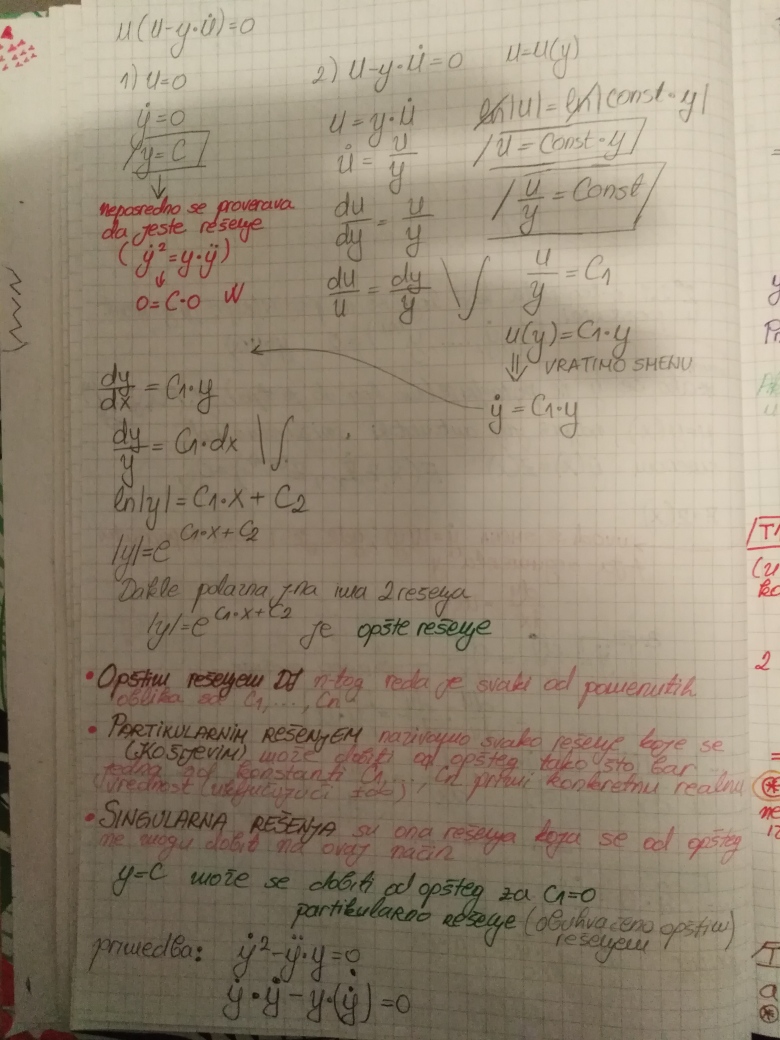 u(u-y·u̇)=0
1) u=0
ẏ=0
y=C
neposredno se proverava
da jeste rešenje
(ẏ²=y·ÿ)
↓
0=C·0
2) u-y·u̇=0
u=y·u̇
u̇=u/y
du/dy=u/y
du/u=dy/y \∫
u=u(y)
ln|u|=ln|const·y|
u=const·y
u/y=const
u/y=C₁
u(y)=C₁·y
⇓ VRATIMO SMENU
ẏ=C₁·y
dy/dx=C₁·y
dy/y=C₁·dx \∫
ln|y|=C₁·x+C₂
|y|=e^(C₁·x+C₂)
Dakle polazna j-na ima 2 rešenja
|y|=e^(C₁·x+C₂) je opšte rešenje
• Opštim rešenjem DJ n-tog reda je svaki od pomenutih
oblika sa C₁,...,Cₙ
• PARTIKULARNIM REŠENJEM nazivamo svako rešenje koje se
(KOŠIJEVIM) može dobiti od opšteg tako što bar
jedna od konstanti C₁,...,Cₙ primi konkretnu realnu
vrednost (uključujući ±∞)
• SINGULARNA REŠENJA su ona rešenja koja se od opšteg
ne mogu dobiti na ovaj način
y=C može se dobiti od opšteg za C₁=0
partikularno rešenje (obuhvaćeno opštim
rešenjem)
primedba: ẏ²-ÿ·y=0
ẏ·ẏ-y·(ẏ)˙=0